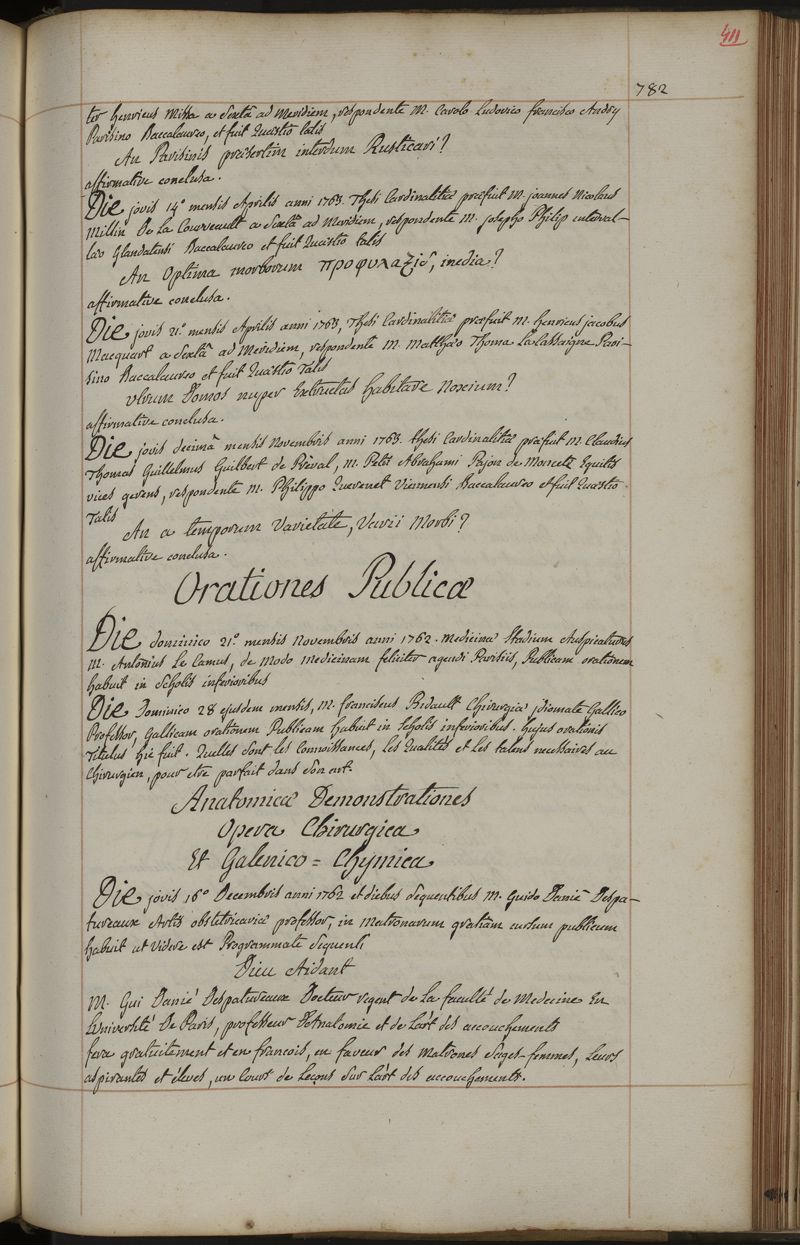 411
782
ter henricus Missa a Sextâ ad Meridiem, respondente M. Carolo Ludovico francisco Andry
Parisino Baccalaureo, et fuit Quæstio talis
An Parisinis præsertim interdum Rusticari?
affirmative conclusa.
Die jovis 14.° mensis Aprilis anni 1763. Thesi Cardinalitiæ præfuit M. joannes Nicolaus
Millin De la Courveault a Sextâ ad Meridiem, respondente M. josepho Philip
læo Glandatensi Baccalaureo et fuit Quæstio talis
An Optima morborum προφυλαξις, inedia?
affirmative conclusa.
Die jovis 21.° mensis Aprilis anni 1763, Thesi Cardinalitiæ præfuit M. henricus jacobus
Macquart a Sextâ ad Meridiem, respondente M. Matthæo Thoma Lalassaigne Pari-
sino Baccalaureo et fuit Quæstio Talis
utrum Domos nuper Extructas habitare Noxium?
affirmative conclusa.
Die jovis decimâ mensis Novembris anni 1763. thesi Cardinalitiæ præfuit M. Claudius
Thomas Guillelmus Guilbert de Préval, M. Petri Abrahami Pajon de Moncets Equitis
vices gerens, respondente M. Philippo Quevenet Baccalaureo et fuit Quæstio
Talis
An a temporum Varietate, Varii Morbi?
affirmative conclusa.
Orationes Publicæ
Die dominico 21.° mensis Novembris anni 1762. Medicinæ Stadium Auspicaturus
M. Antonius Le Camus, de Modo Medicinam feliciter agendi Parisiis, Publicam orationem
habuit in Scholis inferioribus
Die Dominico 28 ejusdem mensis, M. franciscus Bidault Chirurgiæ jdiomate Gallico
Professor, Gallicam orationem Publicam habuit in Scholis inferioribus. hujus orationis
Titulus hic fuit. Quelles sont les Connoissances, les Qualités et les talens necessaires au
Chirurgien, pour etre parfait dans son art.
Anatomicæ Demonstrationes
Opera Chirurgica
Et Galenico = Chymica
Die jovis 16° Decembris anni 1762 et diebus sequentibus M. Guido Danié Despa-
tureaux Artis obstetricariæ professor, in Matronarum gratiam cursum publicum
habuit ut Videre est Programmate Sequenti
Dieu Aidant
M. Gui Danié Despatureaux Docteur regent de La faculté de Medecine En
Luniversité De Paris, professeur D'Anatomie et de L'art des accouchements
fera gratuitement et en francois, en faveur des Matrones Sages-femmes, Leurs
aspirantes et éleves, un Cours de Leçons Sur L'art des accouchements.